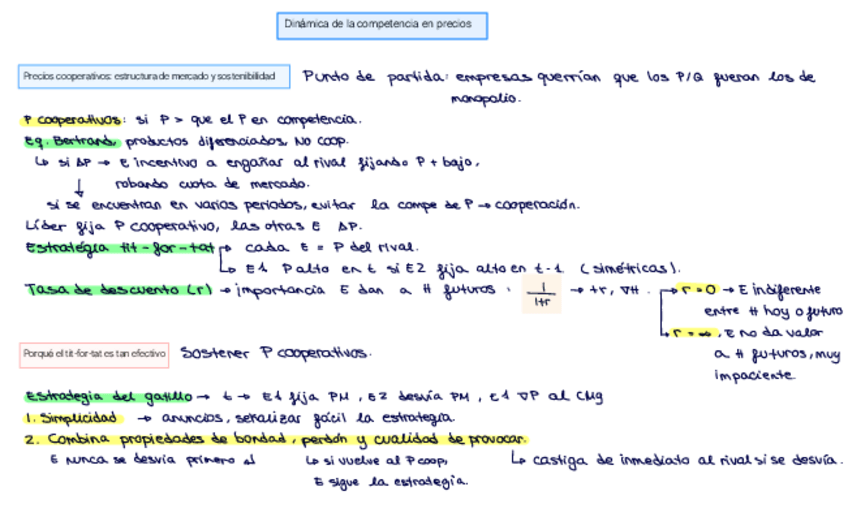 Dinámica de la competencia en precios
Precios cooperativos: estructura de mercado y sostenibilidad
Punto de partida: empresas querrían que los P/Q fueran los de
monopolio.
P cooperativos: si P > que el P en competencia.
Eq. Bertrand, productos diferenciados, NO COOP.
↳ si ΔP → E incentivo a engañar al rival fijando P + bajo,
robando cuota de mercado.
↓
si se encuentran en varios periodos, evitar la compe de P → cooperación.
Líder fija P cooperativo, las otras E ΔP.
Estrategia tit-for-tat → cada E = P del rival.
↳ E1 P alto en t si E2 fija alto en t-1 (simétricas).
Tasa de descuento (r) → importancia E dan a π futuros: 1/1+r → +r, ∇π.
→ r = 0 → E indiferente
entre π hoy o futuro
→ r = ∞, E no da valor
a π futuros, muy
impaciente.
Porqué el tit-for-tat es tan efectivo
Sostener P cooperativos.
Estrategia del gatillo → t → E1 fija PM, E2 desvía PM, E1 ∇P al CMg
1. Simplicidad → anuncios, señalizar fácil la estrategia.
2. Combina propiedades de bondad, perdón y cualidad de provocar.
E nunca se desvía primero ↲
↳ si vuelve al P coop,
E sigue la estrategia.
↳ castiga de inmediato al rival si se desvía.